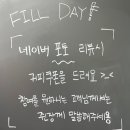 FILL DAY
네이버 포토 리뷰시
커피쿠폰을 드려요 >.<
참여를 원하시는 고객님께서는
직원에게 말씀해주세요